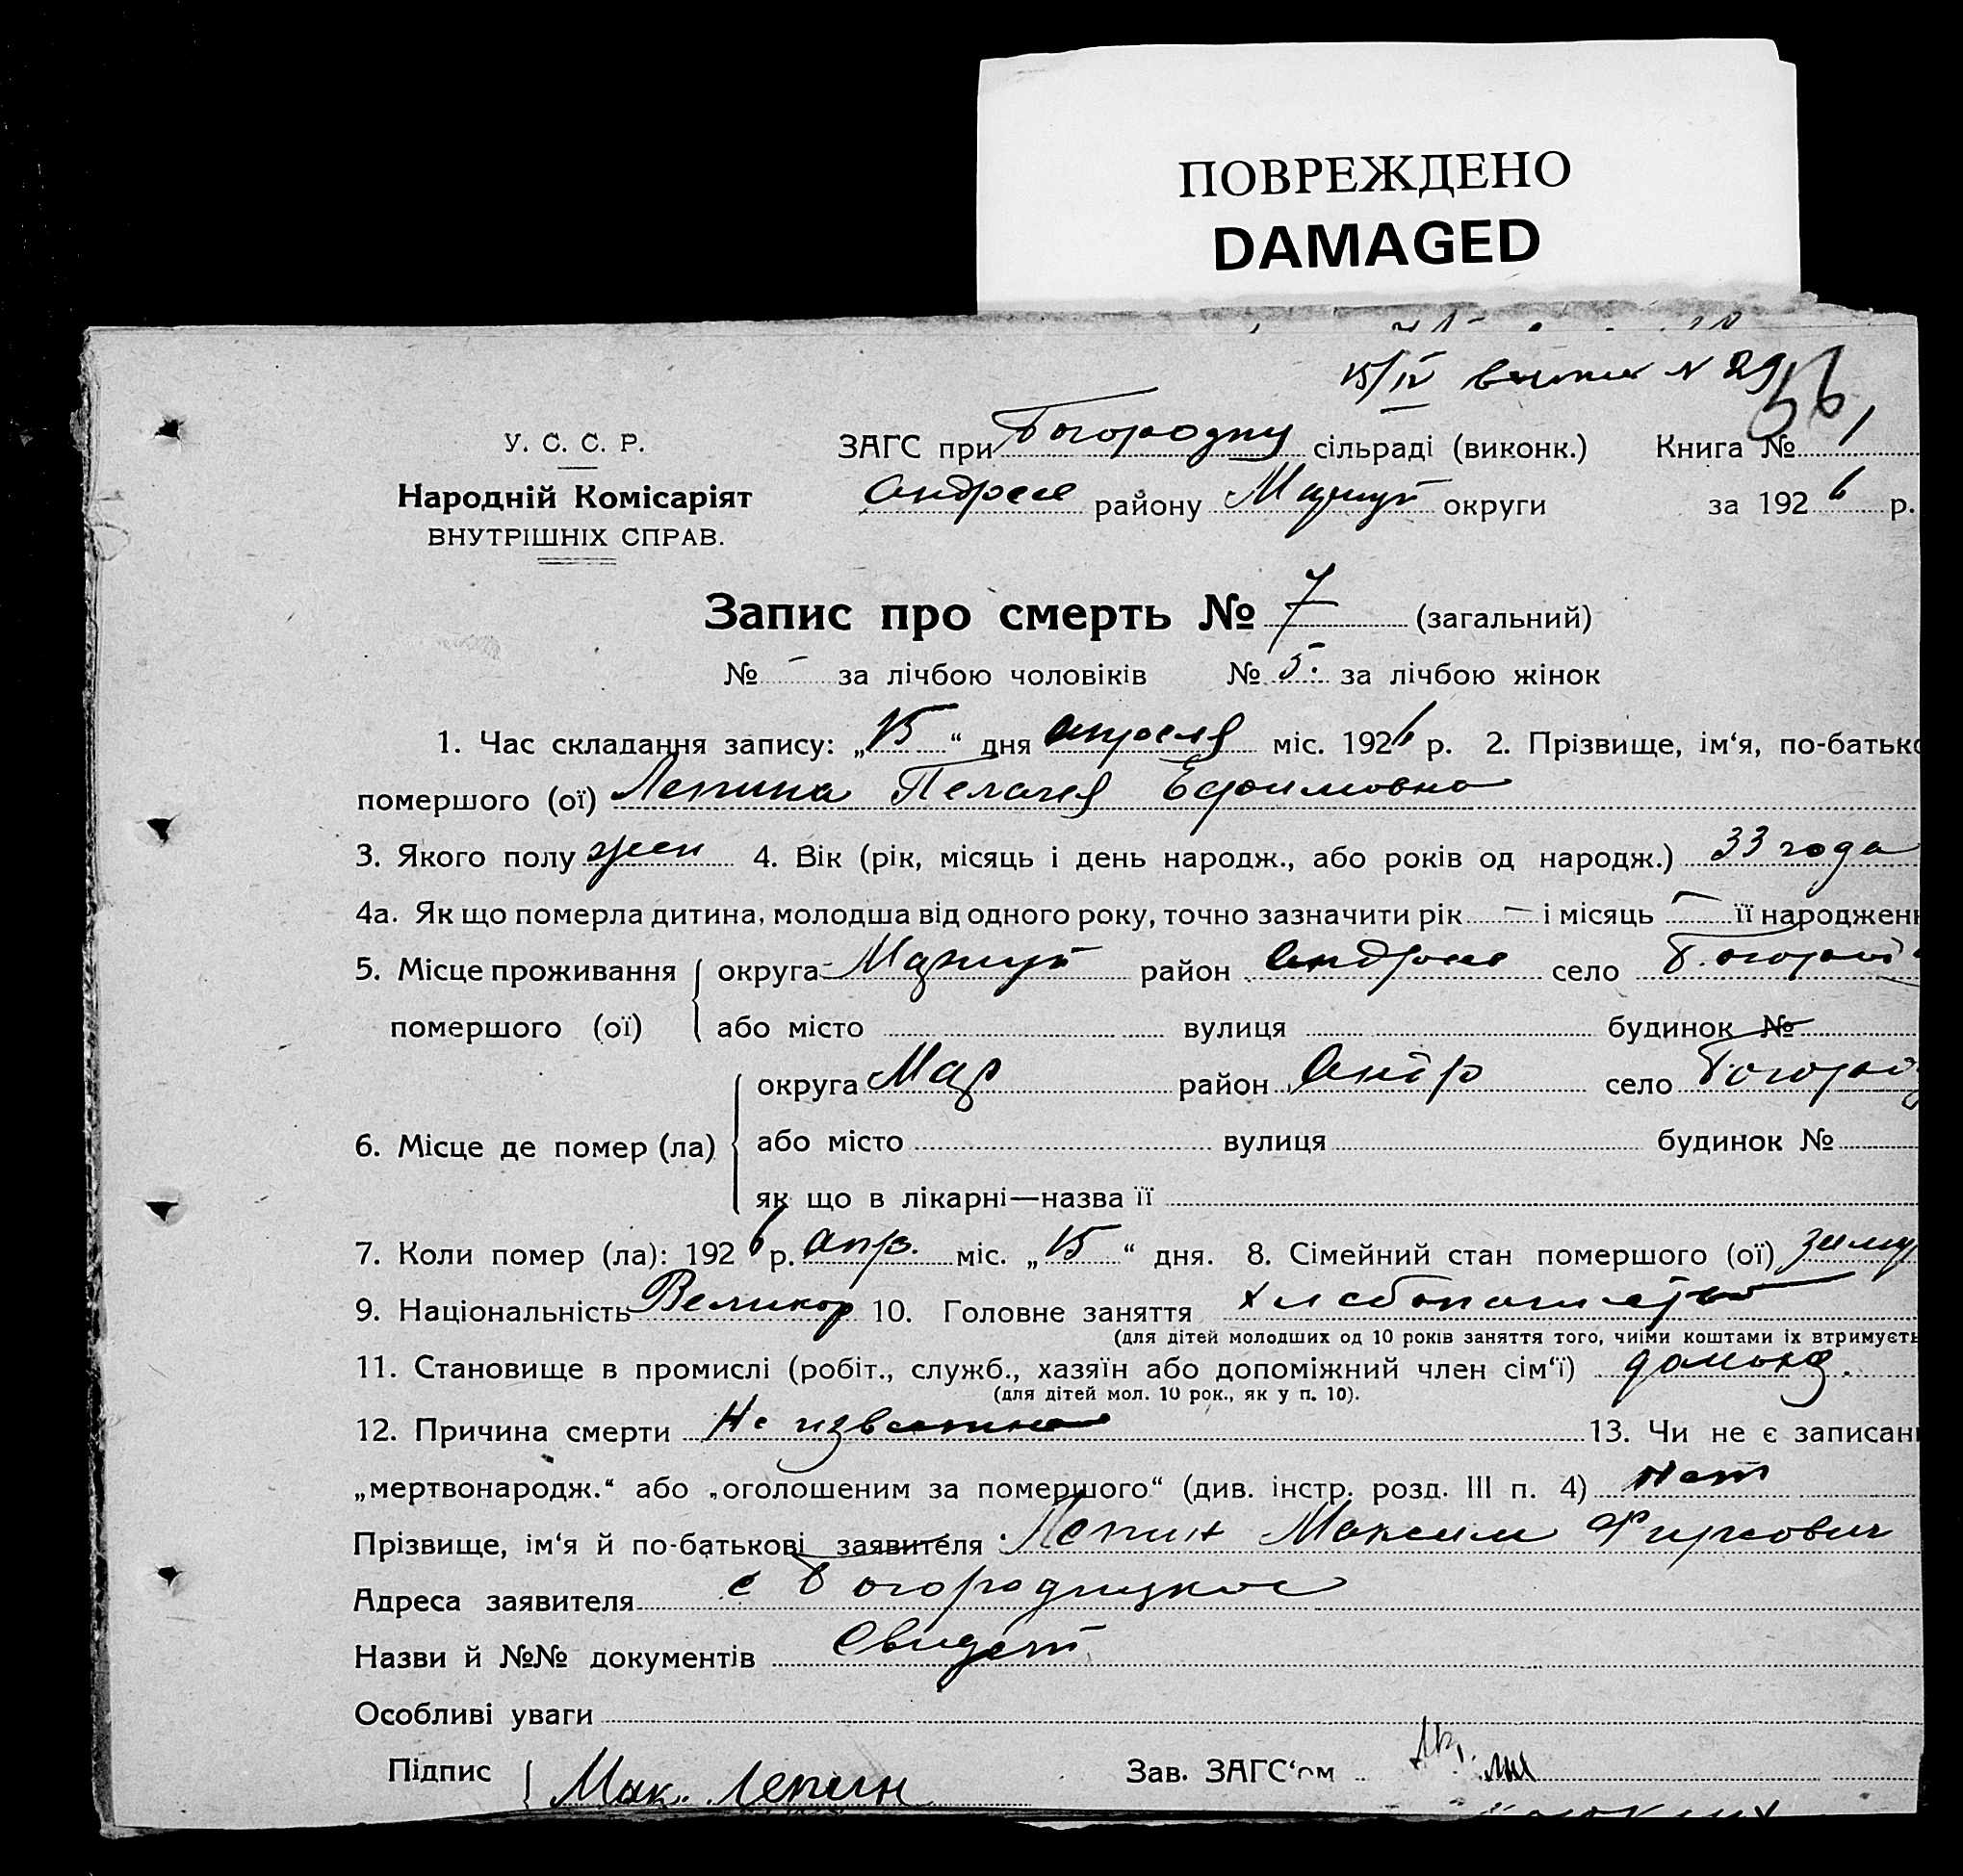 ПОВРЕЖДЕНО
DAMAGED
15/IV N 29
У. С. С. Р. ЗАГС при Богородиц сільраді (виконк.) Книга №
Народній Комісаріят Андреев району Мариуп округи за 1926 р.
ВНУТРІШНІХ СПРАВ.
Запис про смерть № 7 (загальний)
№ - за лічбою чоловіків № 5. за лічбою жінок
1. Час складання запису: „15“ дня апреля міс. 1926 р. 2. Прізвище, ім‘я, по-батько
помершого (ої) Лепина Пелагея Ефимовна
3. Якого полу жен 4. Вік (рік, місяць і день народж., або років од народж.) 33 года
4а. Як що померла дитина, молодша від одного року, точно зазначити рік — і місяць — її народжен
5. Місце проживання округа Мариуп район Андреев село Богород
помершого (ої) або місто вулиця будинок №
округа Мар район Андр село Богород
6. Місце де помер (ла) або місто вулиця будинок №
як що в лікарні—назва її
7. Коли помер (ла): 1926 р. апр. міс. „15“ дня. 8. Сімейний стан помершого (ої) замуж
9. Національність Великор 10. Головне заняття хлебопашество
(для дітей молодших од 10 років заняття того, чиїми коштами їх втримуєть
11. Становище в промислі (робіт., служб., хазяїн або допоміжний член сім‘ї) домохоз.
(для дітей мол. 10 рок., як у п. 10).
12. Причина смерти Не известна 13. Чи не є записан
„мертвонародж.“ або „оголошеним за помершого“ (див. інстр. розд. III п. 4) нет
Прізвище, ім‘я й по-батькові заявителя Лепин Максим Фирсович
Адреса заявителя с Богородицкое
Назви й №№ документів Свидет
Особливі уваги
Підпис Мак. Лепин Зав. ЗАГС‘ом